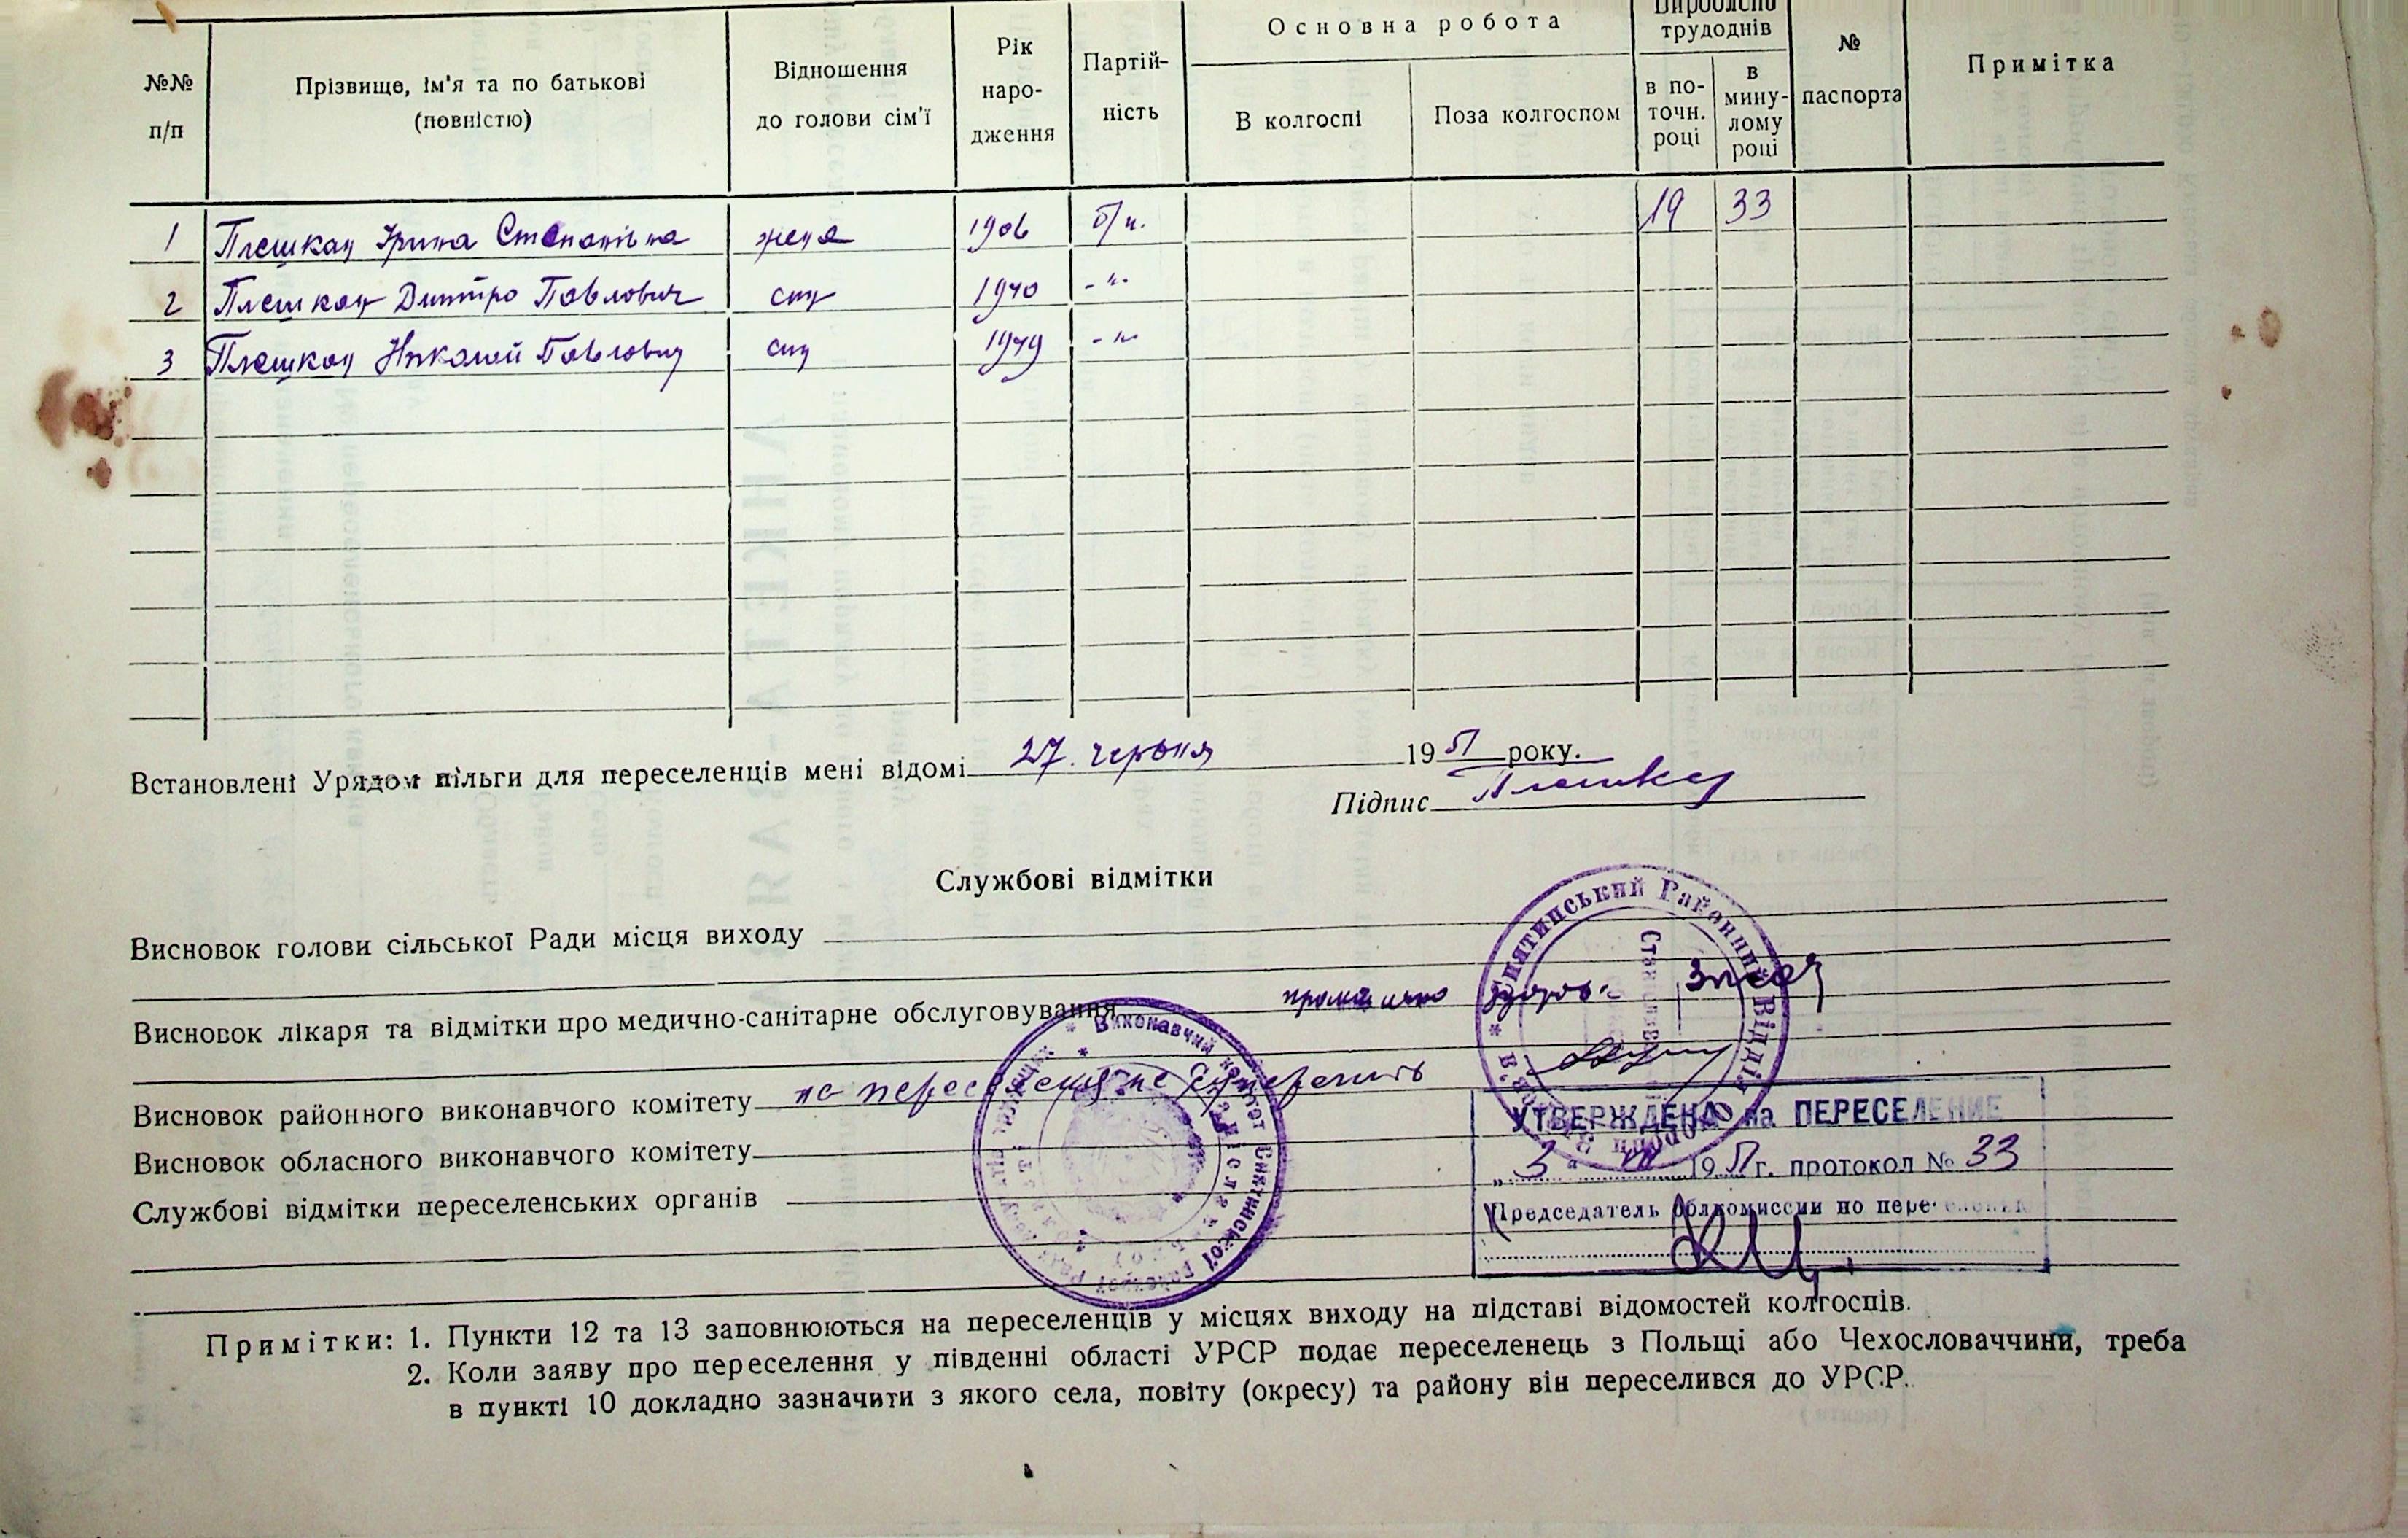 №№ п/п
Прізвище, ім'я та по батькові (повністю)
Відношення до голови сім'ї
Рік наро-дження
Партій-ність
Основна робота
В колгоспі
Поза колгоспом
Вироблено трудоднів
в по-точн. році
в мину-лому році
№ паспорта
Примітка
1 Плешкан Ірина Степанівна жена 1906 б/п. 19 33
2 Плешкан Дмитро Павлович син 1940 -"-
3 Плешкан Николай Павлович син 1949 -"-
Встановлені Урядом пільги для переселенців мені відомі 27. червня 1951 року.
Підпис Плешкан
Службові відмітки
Висновок голови сільської Ради місця виходу
Висновок лікаря та відмітки про медично-санітарне обслуговування
Висновок районного виконавчого комітету на переселення не заперечить
Висновок обласного виконавчого комітету
Службові відмітки переселенських органів
УТВЕРЖДЕНА на ПЕРЕСЕЛЕНИЕ
„3" VII 1951 г. протокол № 33
Председатель Облкомиссии по переселению
Примітки: 1. Пункти 12 та 13 заповнюються на переселенців у місцях виходу на підставі відомостей колгоспів.
2. Коли заяву про переселення у південні області УРСР подає переселенець з Польщі або Чехословаччини, треба
в пункті 10 докладно зазначити з якого села, повіту (окресу) та району він переселився до УРСР.